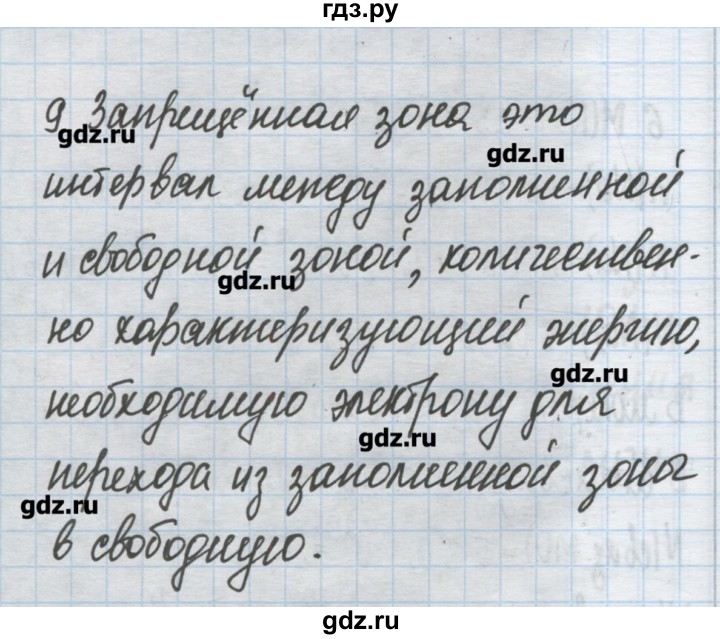 гдз.ру
9 Запрещённая зона это
gdz.ru
gdz.ru
интервал между заполненной
и свободной зоной, количествен-
gdz.ru
но характеризующий энергию,
gdz.ru
необходимую электрону для
gdz.ru
перехода из заполненной зоны
gdz.ru
в свободную.
gdz.ru